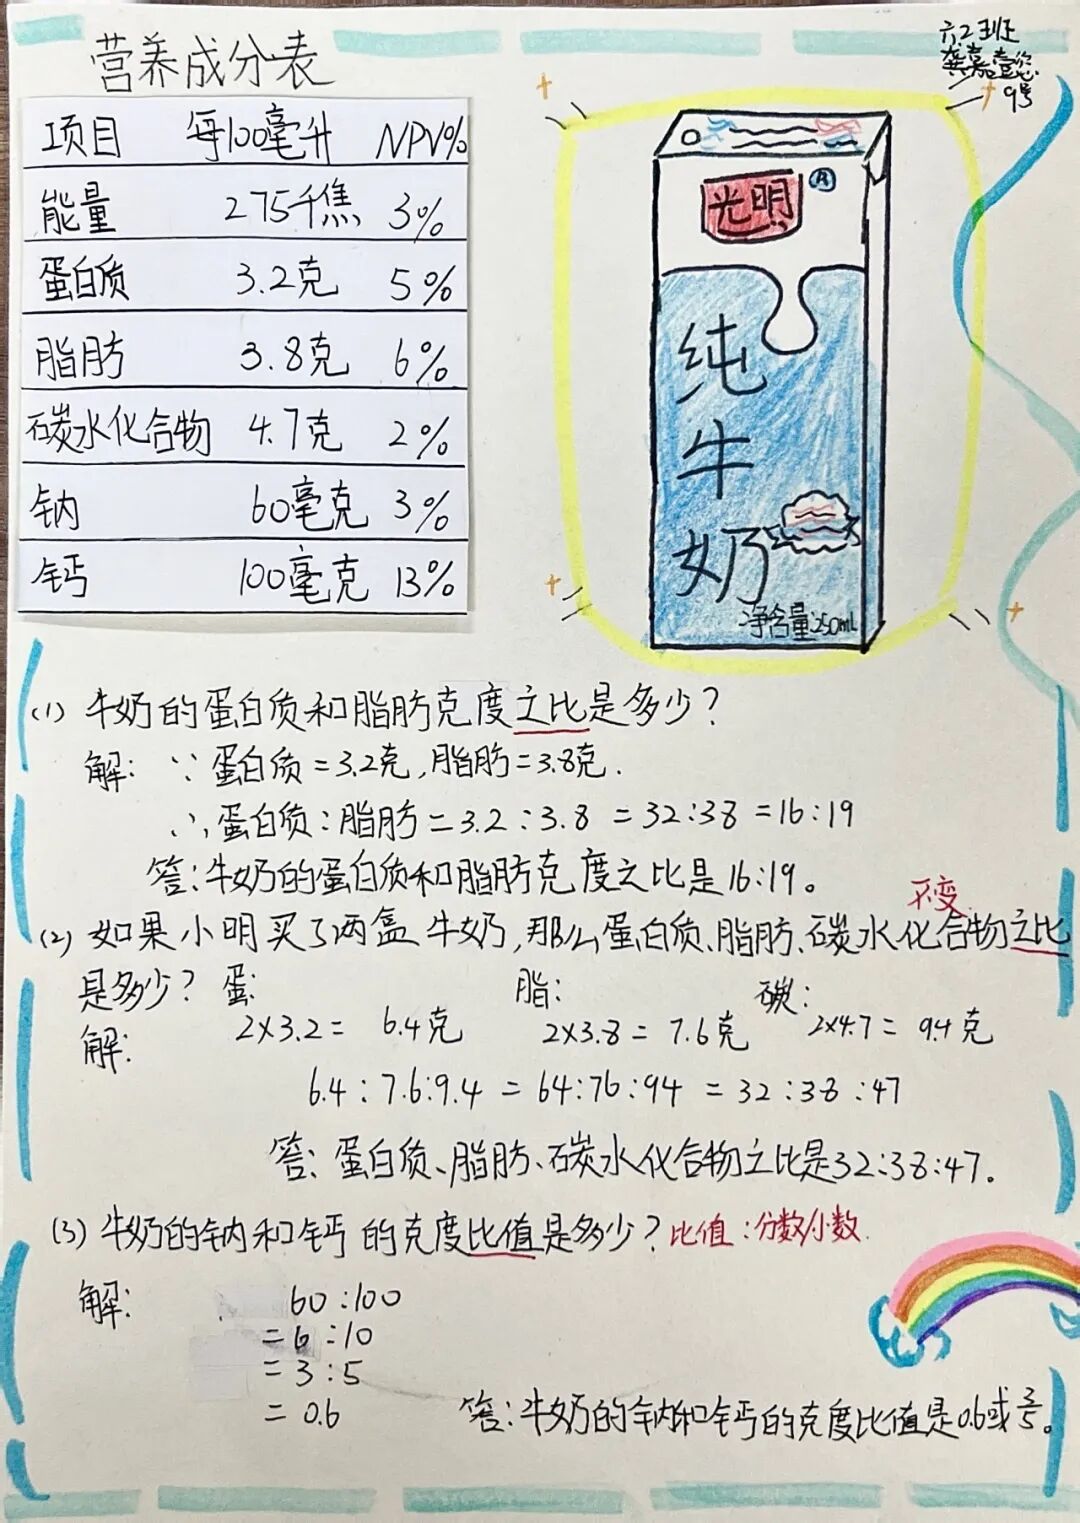 营养成分表
六2班
龚嘉壹
9号
项目 每100毫升 NPV%
能量 275千焦 3%
蛋白质 3.2克 5%
脂肪 3.8克 6%
碳水化合物 4.7克 2%
钠 60毫克 3%
钙 100毫克 13%
光明
R
纯
牛
奶
净含量250mL
(1) 牛奶的蛋白质和脂肪克度之比是多少?
解: ∵蛋白质=3.2克,脂肪=3.8克.
∴蛋白质:脂肪=3.2:3.8=32:38=16:19
答:牛奶的蛋白质和脂肪克度之比是16:19。
不变
(2) 如果小明买了两盒牛奶,那么蛋白质、脂肪、碳水化合物之比
是多少? 蛋: 脂: 碳:
解: 2×3.2= 6.4克 2×3.8= 7.6克 2×4.7= 9.4克
6.4:7.6:9.4=64:76:94=32:38:47
答:蛋白质、脂肪、碳水化合物之比是32:38:47.
(3) 牛奶的钠和钙的克度比值是多少?比值:分数/小数.
解: 60:100
=6:10
=3:5
=0.6 答:牛奶的钠和钙的克度比值是0.6或3/5。